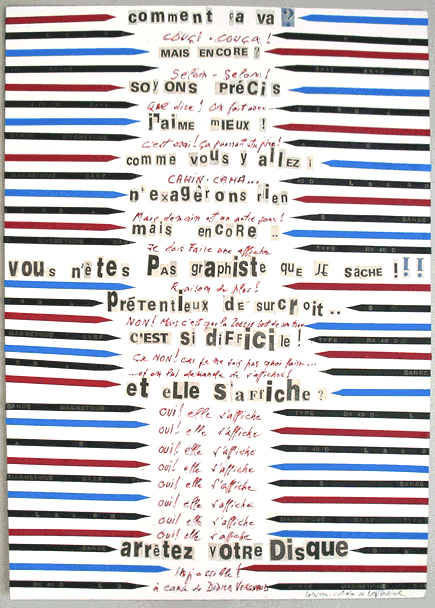 comment ça va?
COUÇI-COUÇA!
MAIS ENCORE?
Selon-Selon!
SOYONS PRéCiS
QUE dire! On fait avec...
j'AIME MiEUX!
C'est vrai! ça pourrait être pire!
comme vous y allez!
CAHIN-CAHA...
n'exagèrons rien
Mais demain est un autre jour!
mais enCoRe..
Je dois Faire une affiche
vous n'êtes PAS graphiste que JE SACHE!!!
Raison de plus!
Prétentieux de surcroit..
NON! Mais c'est que la
C'EST Si diffiCile!
Ce NON! car je ne sais pas quoi faire...
...et on lui demande de s'afficher!
et elle S'AFFiche?
OUi! elle s'affiche
oui! elle s'affiche
oui! elle s'affiche
oui! elle s'affiche
oui! elle s'affiche
oui! elle s'affiche
oui! elle s'affiche
oui! elle s'affiche
arrêtez votre Disque
Impossible!
à cause de Didier